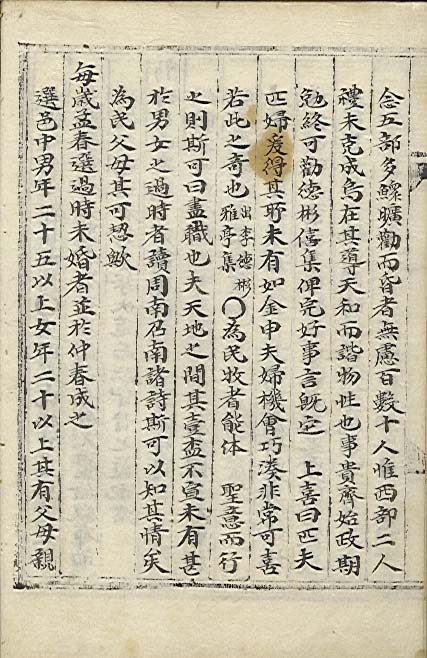 念五部多鰥曠勸而昏者無慮百數十人惟西部二人
禮未克成烏在其導天和而諧物性也事貴齊始政期
勉終可勸德彬僖集俾完好事言旣定 上喜曰匹夫
匹婦爰得其所未有如金申夫婦機會巧湊非常可喜
若此之奇也出李德彬雅亭集○爲民牧者能体 聖意而行
之則斯可曰盡職也夫天地之間其壹盍不宣未有甚
於男女之過時者讀周南召南諸詩斯可以知其情矣
爲民父母其可恝歟
每歲孟春選過時未婚者並於仲春成之
選邑中男年二十五以上女年二十以上其有父母親